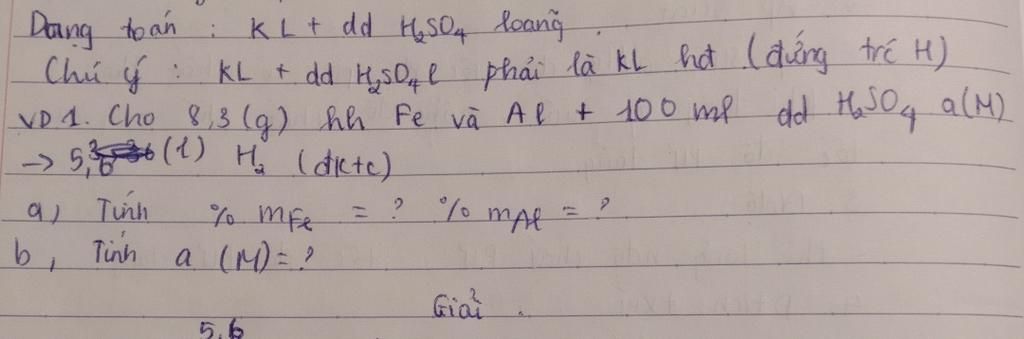 Dạng toán : KL + dd H₂SO₄ loãng.
Chú ý : KL + dd H₂SO₄l phải là KL hđ (đứng trc H)
VD1. Cho 8,3(g) hh Fe và Al + 100 ml dd H₂SO₄ a(M)
→ 5,6 (l) H₂ (đktc)
a) Tính % mFe = ? % mAl = ?
b, Tính a (M) = ?
Giải.
5,6